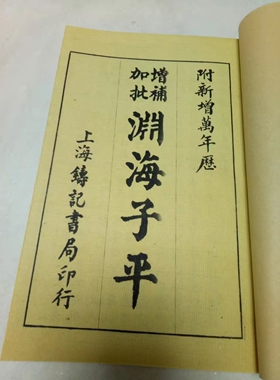 附新增萬年歷
增補
加批
淵海子平
上海鑄記書局印行